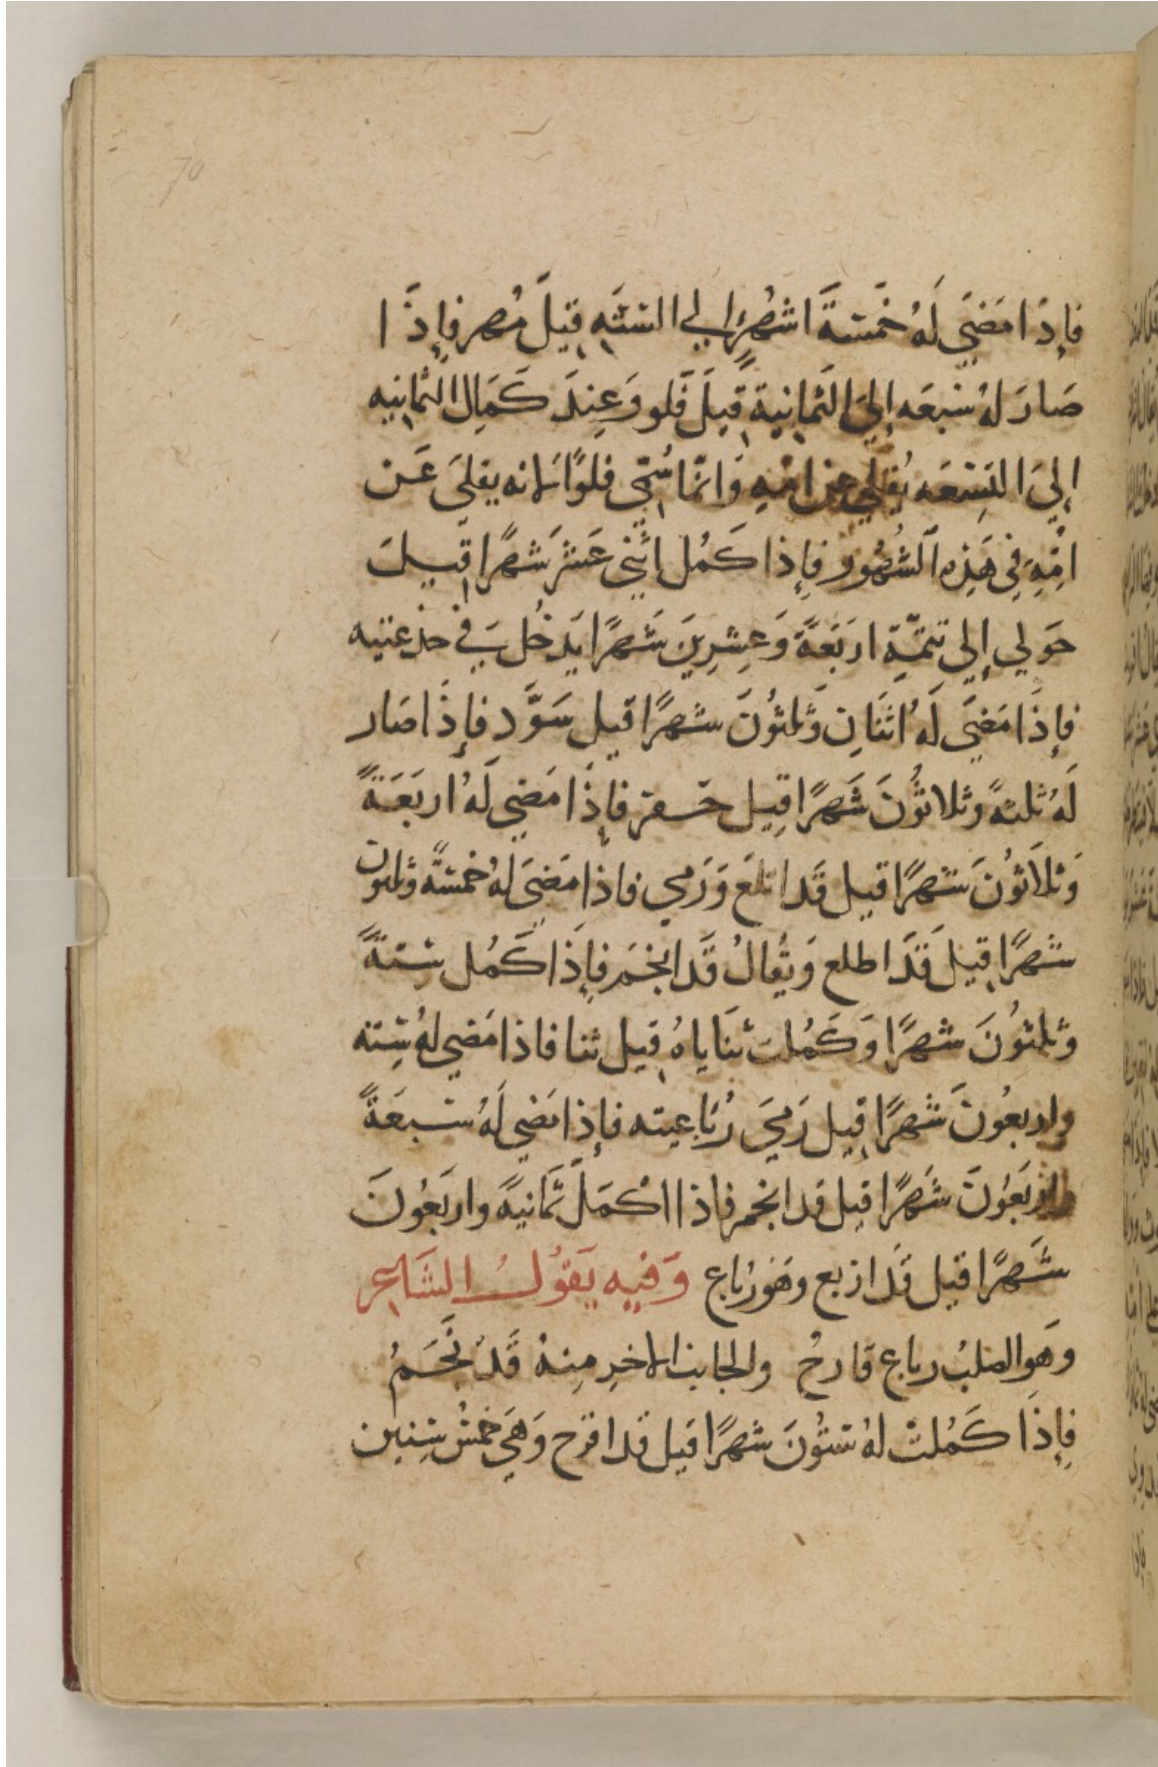 70
فإِذَا مَضَي لَهُ خَمْسَةَ اشهُرٍ إلي الستَه قِيلَ مُهر فإِذَا
صَارَ لهُ سَبعَه إليَ الثمانِيةِ قِيلَ فَلو وَعِندَ كَمَالِ الثمانِيه
إليَ التِسْعَه يُفلي عن امّهِ وَانمّا سُمّي فلوًّا لانه يفلَي عَن
امِّهِ فِي هَذِه الشُهُور فإِذا كَمُل اثَني عَشَر شهرًا قِيلَ
حَولي إلي تتمَّةِ اربَعَةً وَعِشرِينَ شَهرًا يَدخُل في جذعيته
فإِذَا مَضَي لَهُ اثنَانِ وَثلثُونَ شهرًا قيل سَوَّد فإِذَا صَار
لَهُ ثلثهً وثلاثُونَ شَهرًا قِيل فإِذَا مَضي لَهُ اربَعَةً
وَثلاَثونَ شهرًا قيل قَد وَرَمي فاذا مَضيَ لهُ خمسَّه وثلثون
شهرًا قِيلَ قَدَ اطلع وَيُقالُ قَد انجَم فإِذَا كَمُل سِتةً
وَثلثوُنَ شهرًا وَكَمُلت ثنَاياهُ قِيل ثنا فاذا مَضي لهُ سِته
واربعُونَ شَهرًا قِيل رَميَ رُبَاعِيته فإِذا مَضي لَهُ سَبعَةً
واربَعُونَ شَهرًا قيل قد انجم فاذا اكمَلَ ثَمَانيَةً واربَعُونَ
شَهرًا قيل قَد اربع وهَوَ رُباع وَفيهِ يَقوُلُ الشَاعِر
وهَو الصلبُ رباع قارحُ والجانب الاخرِ مِنهُ قَد نَجَمُ
فإِذَا كَمُلتْ لهُ سَتُونَ شهرًا قيل قَد اقرح وَهيَ خَمسُ سِنِين